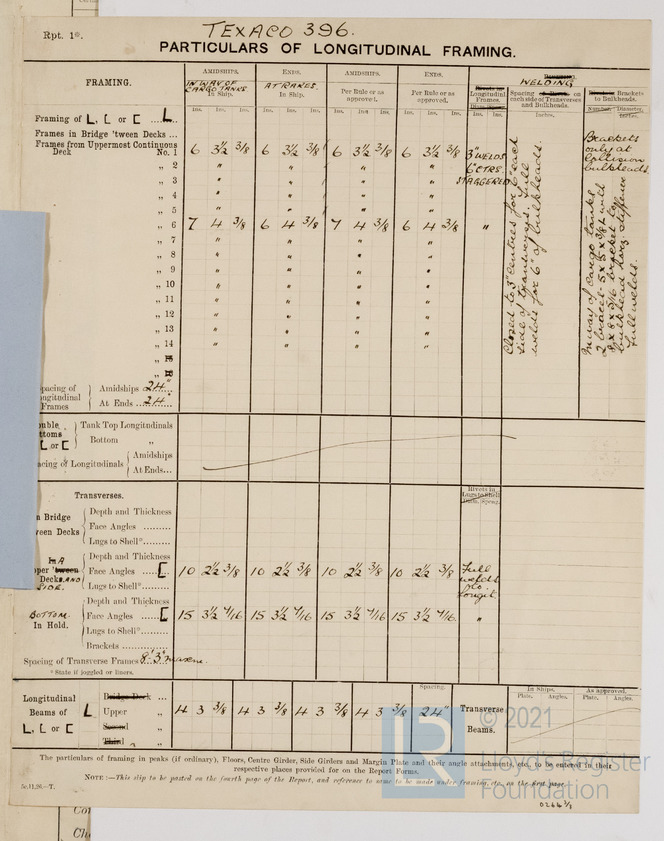 Rpt. 1*.
TEXACO 396.
PARTICULARS OF LONGITUDINAL FRAMING.
FRAMING.
AMIDSHIPS. ENDS. AMIDSHIPS. ENDS.
IN WAY OF CARGO TANKS
In Ship.
AT RAKES.
In Ship.
Per Rule or as approved.
Per Rule or as approved.
Longitudinal Frames.
WELDING
Spacing on each side of Transverses and Bulkheads.
Brackets to Bulkheads.
Ins. Ins. Ins. Ins. Ins. Ins. Ins. Ins. Ins. Ins. Ins. Ins. Ins. Ins. Inches.
Framing of L, [ or [ ... L
Frames in Bridge 'tween Decks ...
Frames from Uppermost Continuous
Deck No. 1 6 3½ 3/8 6 3½ 3/8 6 3½ 3/8 6 3½ 3/8 3" WELDS
„ 2 " " " " 6" CTRS.
„ 3 " " " " STAGGERED
„ 4 " " " "
„ 5 " " " "
„ 6 7 4 3/8 6 4 3/8 7 4 3/8 6 4 3/8 "
„ 7 " " " "
„ 8 " " " "
„ 9 " " " "
„ 10 " " " "
„ 11 " " " "
„ 12 " " " "
„ 13 " " " "
„ 14 " " " "
„ 15
„ 16
Closed to 3" centres for 6" each
side of transverses. Full
welds for 6" of bulkheads.
Brackets
only at
collision
bulkheads
In way of cargo tanks
bulkhead horz. stiffener
Full welds.
pacing of
ngitudinal
Frames
Amidships 24"
At Ends 24"
uble
ttoms
L or [
Tank Top Longitudinals
Bottom „
acing of Longitudinals
Amidships
At Ends...
Transverses.
Rivets in
Lugs to Shell
Diam. Spcng.
n Bridge
ween Decks
Depth and Thickness
Face Angles .........
Lugs to Shell*.......
pper 'tween
Decks AND
SIDE.
Depth and Thickness
Face Angles ...... [ 10 2½ 3/8 10 2½ 3/8 10 2½ 3/8 10 2½ 3/8 Full
welds
to
Longit.
Lugs to Shell*.......
BOTTOM
In Hold.
Depth and Thickness
Face Angles ...... [ 15 3½ 7/16 15 3½ 7/16 15 3½ 7/16 15 3½ 7/16 "
Lugs to Shell*.......
Brackets ..............
Spacing of Transverse Frames 8'.3"
* State if joggled or liners.
Longitudinal
Beams of L
L, [ or [
Bridge Deck ...
Upper „
Second „
Third „
4 3 3/8 4 3 3/8 4 3 3/8 4 3 3/8
Spacing.
24"
Transverse
Beams.
In Ships. As approved.
Plate. Angles. Plate. Angles.
The particulars of framing in peaks (if ordinary), Floors, Centre Girder, Side Girders and Margin Plate and their angle attachments, etc., to be entered in their
respective places provided for on the Report Forms.
NOTE:—This slip to be posted on the fourth page of the Report, and reference to same to be made under framing, etc., on the first page.
0266 3/3
© 2021
Lloyd's Register
Foundation
LR